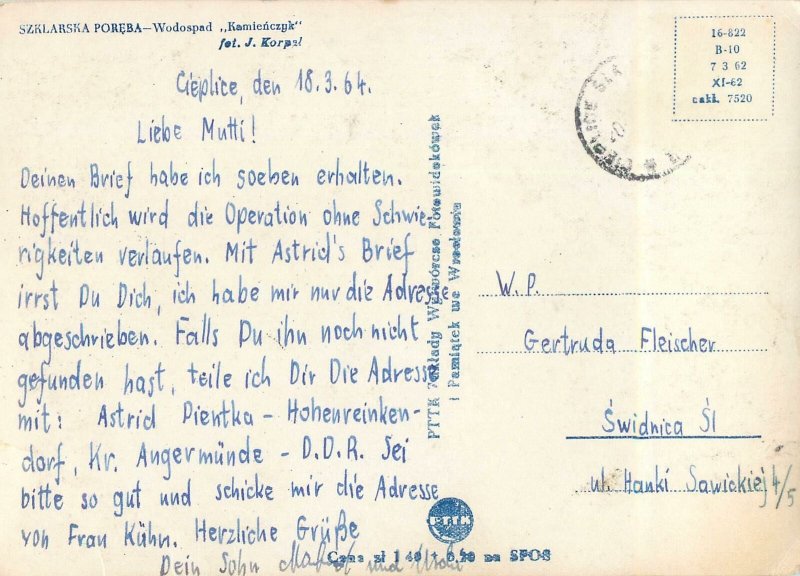 SZKLARSKA PORĘBA—Wodospad „Kamieńczyk"
fot. J. Korpal
Cieplice, den 18.3.64.
Liebe Mutti!
Deinen Brief habe ich soeben erhalten.
Hoffentlich wird die Operation ohne Schwie-
rigkeiten verlaufen. Mit Astrid's Brief
irrst Du Dich, ich habe mir nur die Adresse
abgeschrieben. Falls Du ihn noch nicht
gefunden hast, teile ich Dir Die Adresse
mit: Astrid Pientka – Hohenreinken-
dorf, Kr. Angermünde – D.D.R. Sei
bitte so gut und schicke mir die Adresse
von Frau Kühn. Herzliche Grüße
Dein Sohn und
PTTK Zakłady Wytwórcze Fotowidokówek
i Pamiątek we Wrocławiu
PTTK
Cena zł 1,40 + 0,20 na SFOS
16-822
B-10
7 3 62
XI-62
nakł. 7520
W. P.
Gertruda Fleischer
Świdnica Śl
ul. Hanki Sawickiej 4/5